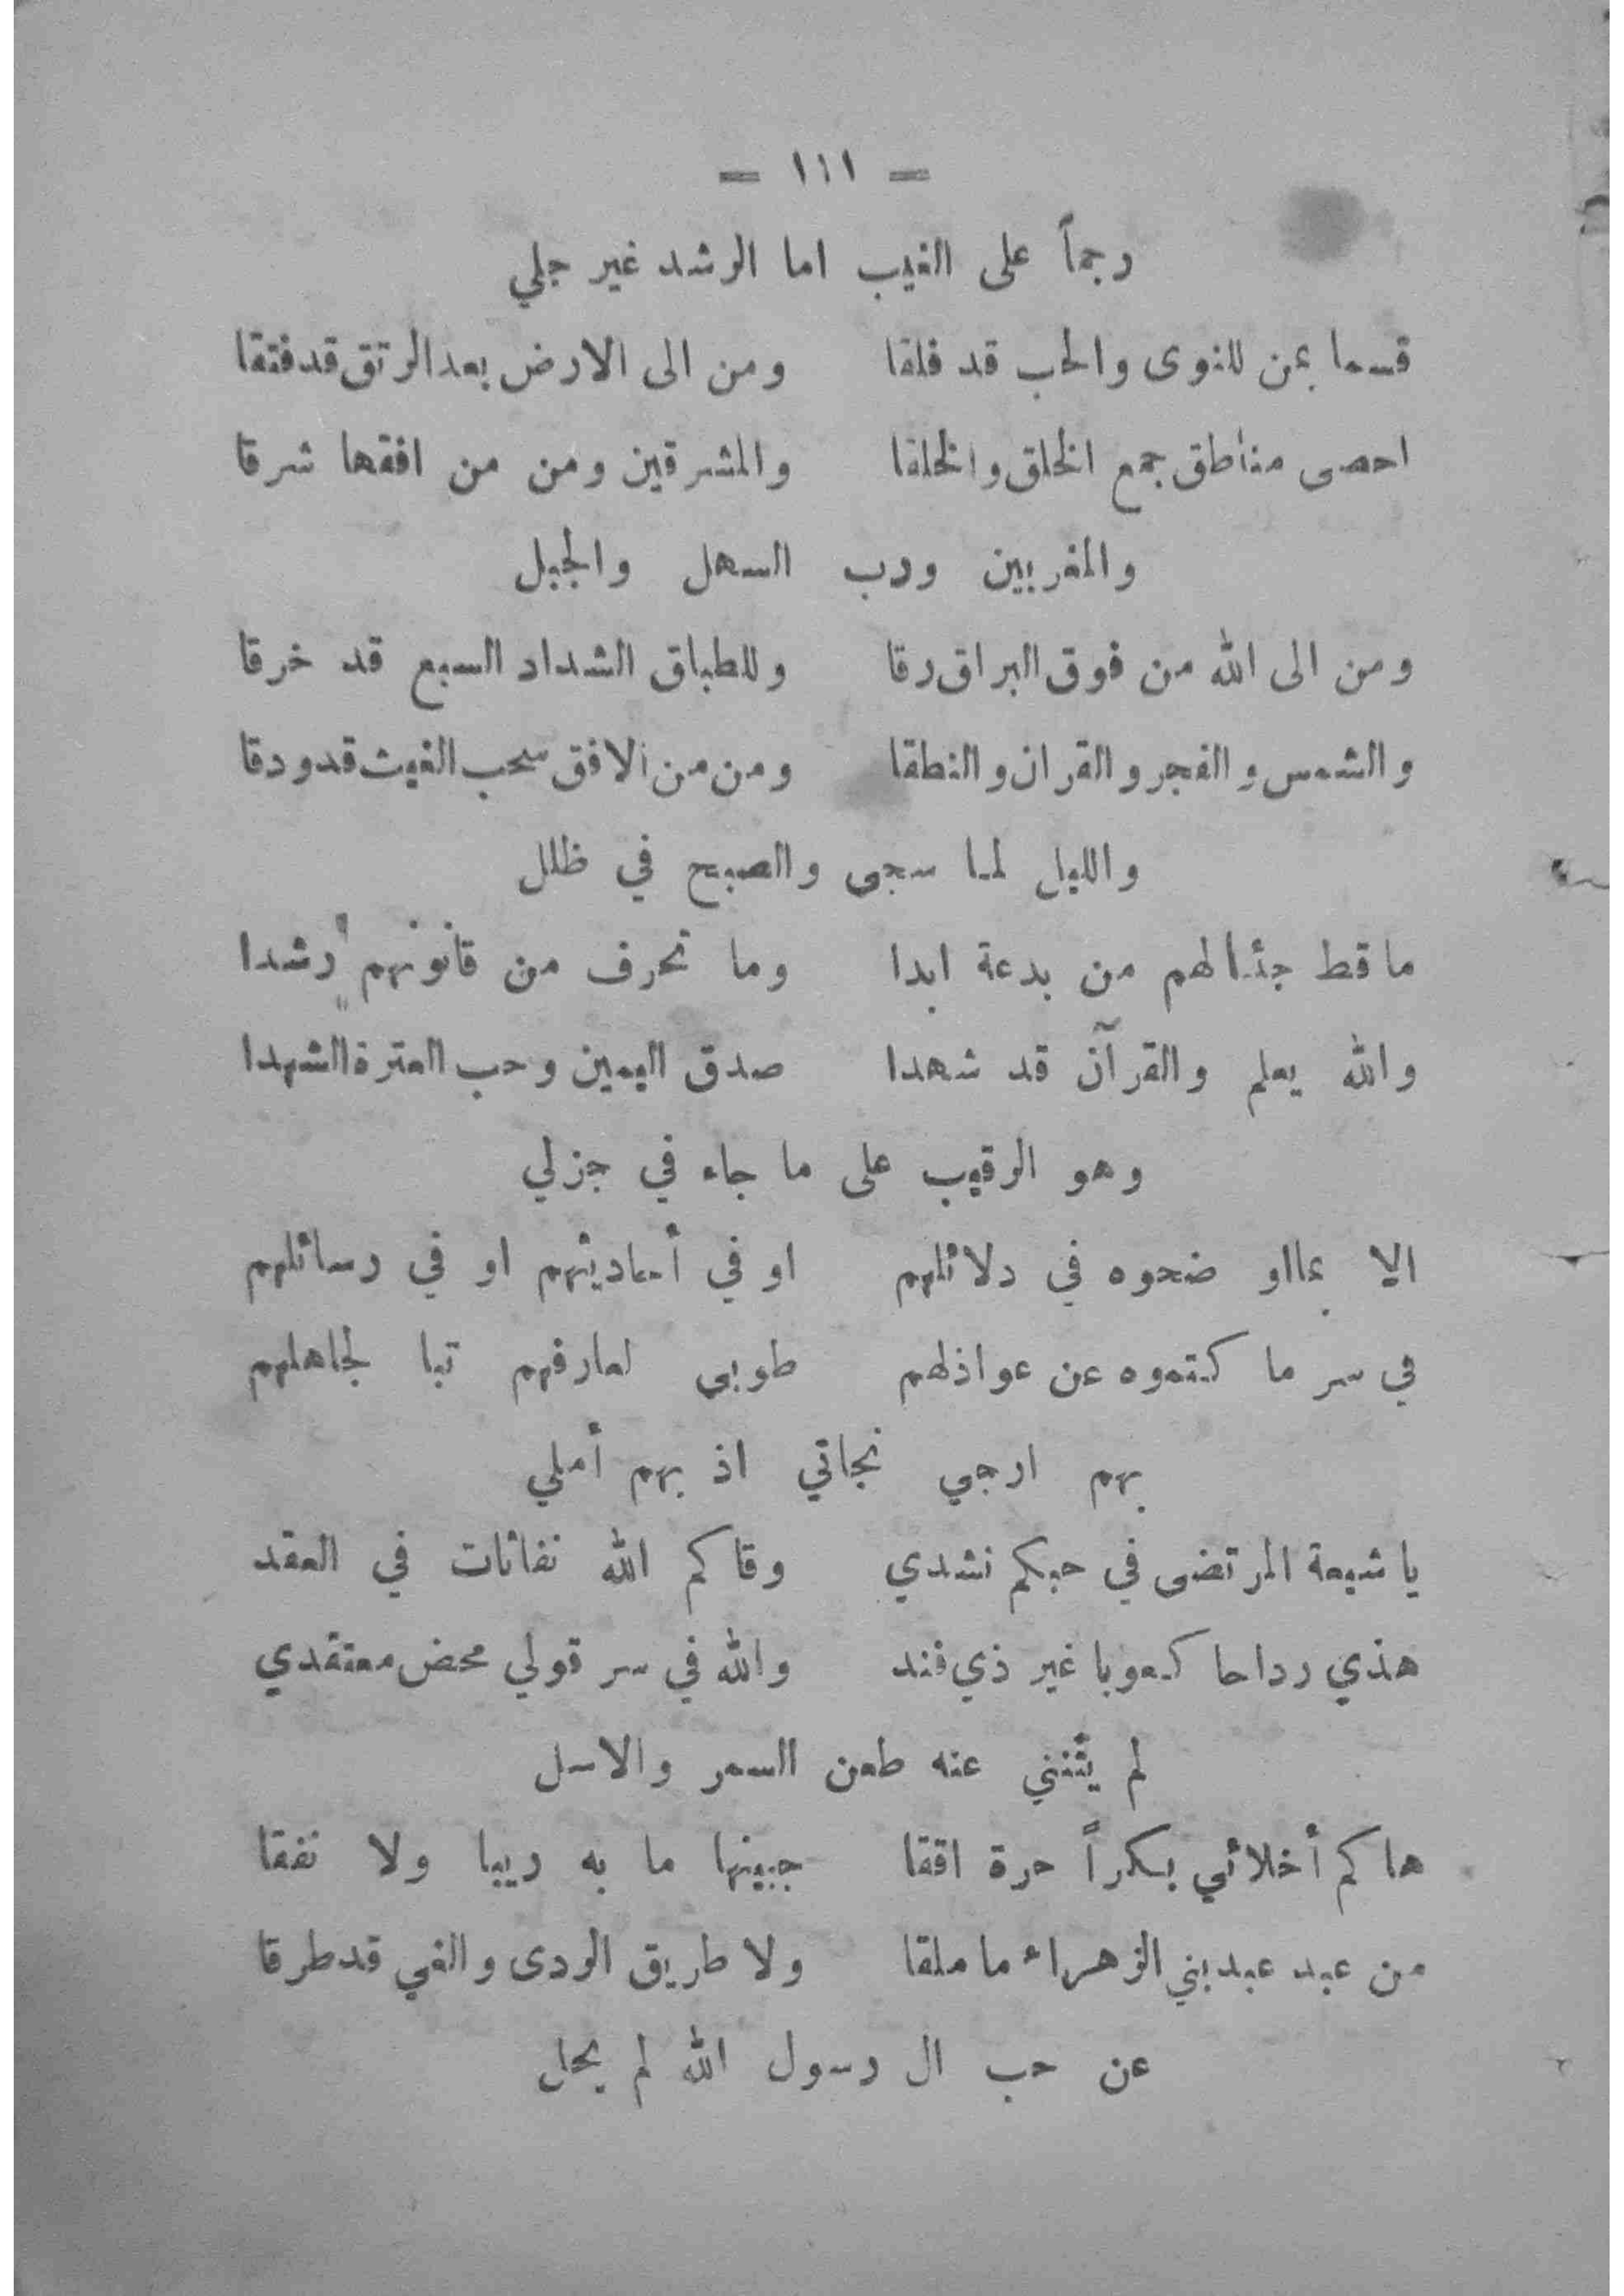 — ١١١ —
رجماً على الغيب اما الرشد غير جلي
قسما بمن للنوى والحب قد فلقا ومن الى الارض بعد الرتق قد فتقا
احصى مناطق جمع الخلق والخلقا والمشرقين ومن من افقها شرقا
والمغربين ورب السهل والجبل
ومن الى الله من فوق البراق رقا وللطباق الشداد السبع قد خرقا
والشمس والفجر والقران والنطقا ومن من الافق سحب الغيث قد ودقا
والليل لما سجى والصبح في ظلل
ما قط جئنا لهم من بدعة ابدا وما تحرف من قانونهم رشدا
والله يعلم والقرآن قد شهدا صدق اليمين وحب العترة الشهدا
وهو الرقيب على ما جاء في جزلي
الا بما او ضحوه في دلائلهم او في أحاديثهم او في رسائلهم
في سر ما كتموه عن عواذلهم طوبى لعارفهم تبا لجاهلهم
بهم ارجي نجاتي اذ بهم أملي
يا شيعة المرتضى في حبكم نشدي وقاكم الله نفاثات في العقد
هذي رداحا كعوبا غير ذي فند والله في سر قولي محض معتقدي
لم يثنني عنه طعن السمر والاسل
هاكم أخلائي بكراً حرة افقا جبينها ما به ريبا ولا نفقا
من عبد عبد بني الزهراء ما ملقا ولا طريق الردى والغي قد طرقا
عن حب ال رسول الله لم يحل